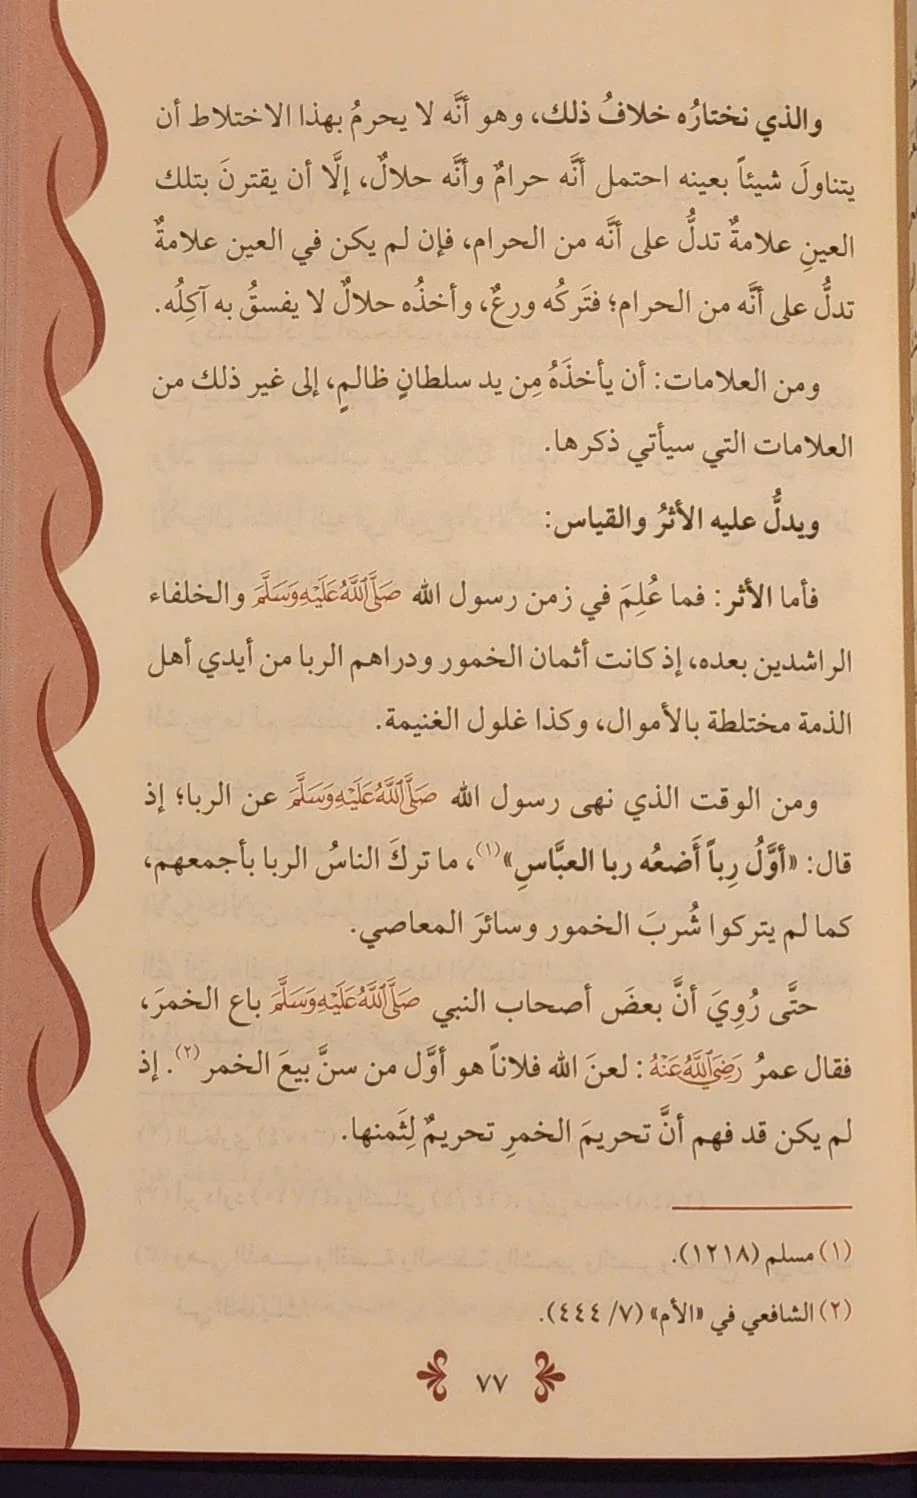 والذي نختارُه خلافُ ذلك، وهو أنَّه لا يحرمُ بهذا الاختلاط أن
يتناولَ شيئاً بعينه احتمل أنَّه حرامٌ وأنَّه حلالٌ، إلَّا أن يقترنَ بتلك
العينِ علامةٌ تدلُّ على أنَّه من الحرام، فإن لم يكن في العين علامةٌ
تدلُّ على أنَّه من الحرام؛ فتَركُه ورعٌ، وأخذُه حلالٌ لا يفسقُ به آكِلُه.
ومن العلامات: أن يأخذَهُ مِن يد سلطانٍ ظالمٍ، إلى غير ذلك من
العلامات التي سيأتي ذكرها.
ويدلُّ عليه الأثرُ والقياس:
فأما الأثر: فما عُلِمَ في زمن رسول الله صَلَّى اللَّهُ عَلَيْهِ وَسَلَّمَ والخلفاء
الراشدين بعده، إذ كانت أثمان الخمور ودراهم الربا من أيدي أهل
الذمة مختلطة بالأموال، وكذا غلول الغنيمة.
ومن الوقت الذي نهى رسول الله صَلَّى اللَّهُ عَلَيْهِ وَسَلَّمَ عن الربا؛ إذ
قال: «أوَّلُ رِباً أَضعُه ربا العبَّاسِ»(١)، ما تركَ الناسُ الربا بأجمعهم،
كما لم يتركوا شُربَ الخمور وسائرَ المعاصي.
حتَّى رُوِيَ أنَّ بعضَ أصحاب النبي صَلَّى اللَّهُ عَلَيْهِ وَسَلَّمَ باع الخمرَ،
فقال عمرُ رَضِيَ اللَّهُ عَنْهُ: لعنَ الله فلاناً هو أوَّل من سنَّ بيعَ الخمر(٢). إذ
لم يكن قد فهم أنَّ تحريمَ الخمرِ تحريمٌ لِثَمنها.
(١) مسلم (١٢١٨).
(٢) الشافعي في «الأم» (٧/ ٤٤٤).
٧٧